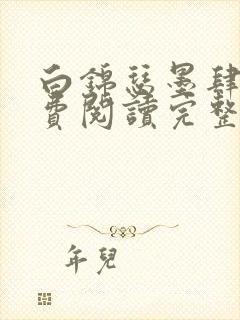 白錦瑟墨肆
費閱讀完整
年兒